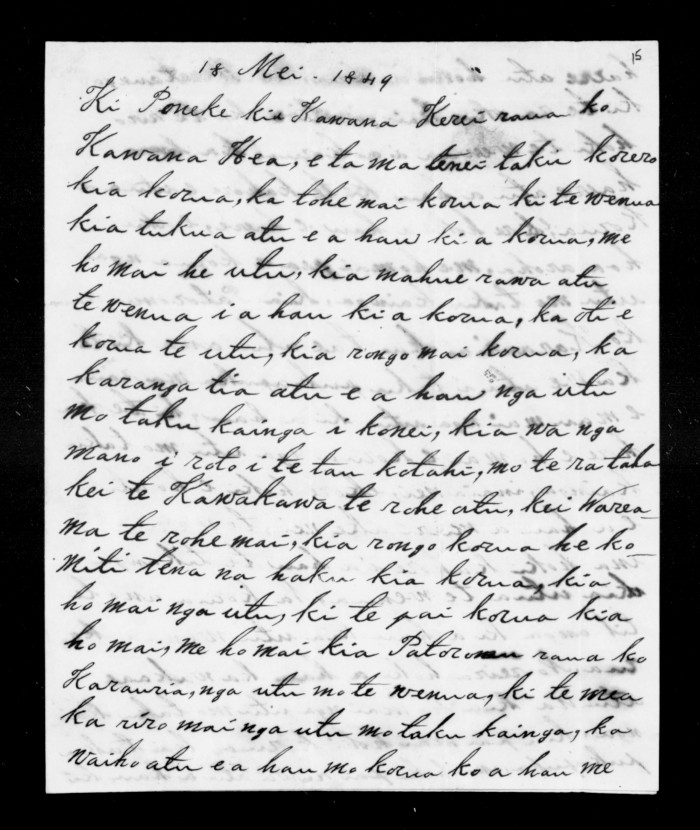 15
18 Mei. 1849
Ki Poneke kia Kawana Kerei raua ko
Kawana Hea, e ta ma tenei taku korero
kia korua, ka tohe mai korua ki te wenua
kia tukua atu e a hau ki a korua, me
ho mai he utu, kia mahue rawa atu
te wenua i a hau ki a korua, ka oti e
korua te utu, kia rongo mai korua, ka
karanga tia atu e a hau nga utu
mo taku kainga i konei, kia wa nga
mano i roto i te tau kotahi, mo te ra taha
kei te Kawakawa te rohe atu, kei Warea-
ma te rohe mai, kia rongo korua he ko-
miti tena na haku kia korua, kia
ho mai nga utu, ki te pai korua kia
ho mai, me ho mai kia Patoromu raua ko
Karauria, nga utu mo te wenua, ki te mea
ka riro mai nga utu mo taku kainga, ka
waiho atu e a hau mo korua ko a hau me